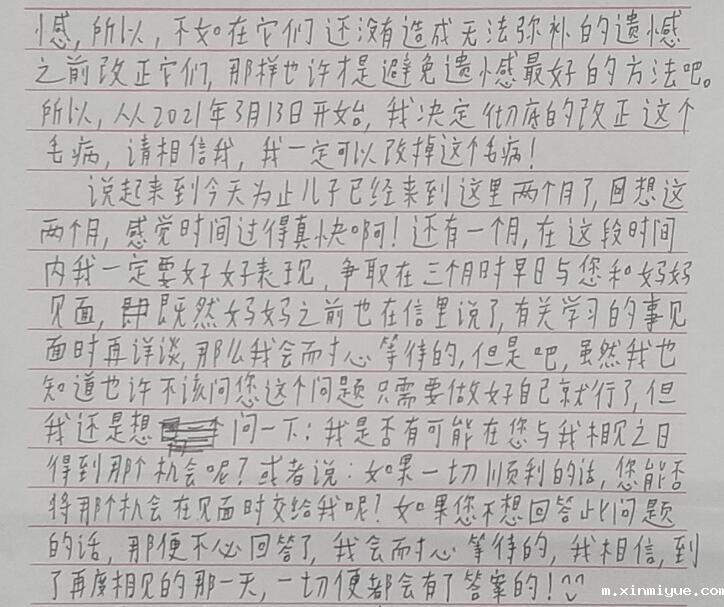 憾，所以，不如在它们还没有造成无法弥补的遗憾
之前改正它们，那样也许才是避免遗憾最好的方法吧。
所以，从2021年3月13日开始，我决定彻底的改正这个
毛病，请相信我，我一定可以改掉这个毛病！
说起来到今天为止儿子已经来到这里两个月了，回想这
两个月，感觉时间过得真快啊！还有一个月，在这段时间
内我一定要好好表现，争取在三个月时早日与您和妈妈
见面，既然妈妈之前也在信里说了，有关学习的事见
面时再详谈，那么我会耐心等待的，但是吧，虽然我也
知道也许不该问您这个问题只需要做好自己就行了，但
我还是想问一下：我是否有可能在您与我相见之日
得到那个机会呢？或者说：如果一切顺利的话，您能否
将那个机会在见面时交给我呢？如果您不想回答此问题
的话，那便不必回答了，我会耐心等待的，我相信，到
了再度相见的那一天，一切便都会有了答案的！
m.xinmiyue.com